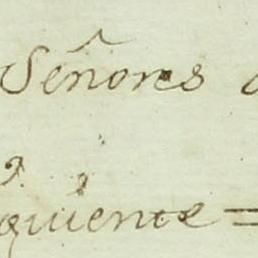 Señores
quiente =